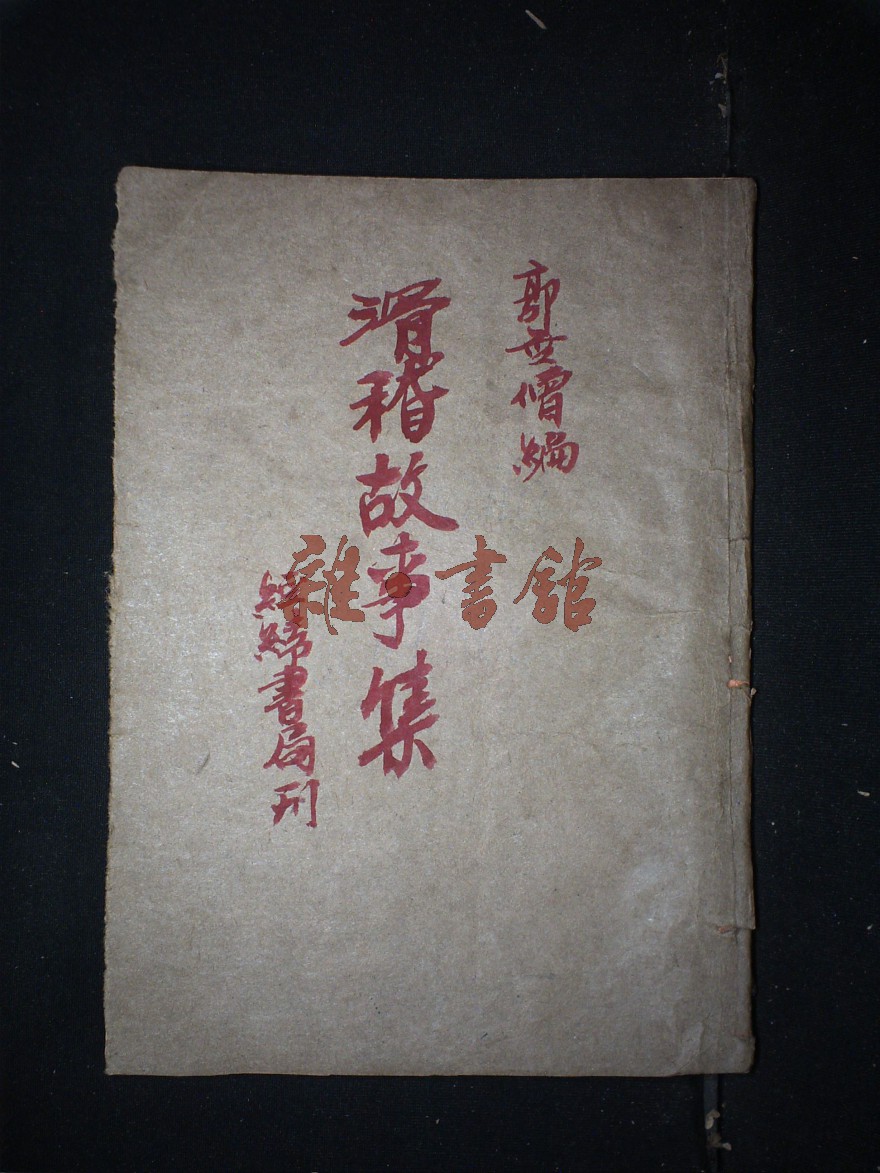 郭僧編
滑稽故事集
經緯書局刊
雜·書館